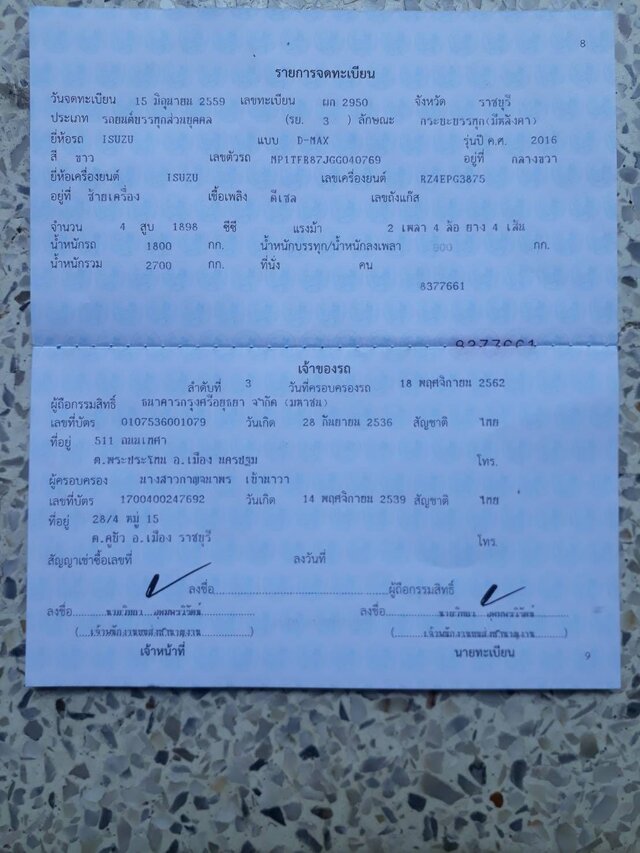 8
รายการจดทะเบียน
วันจดทะเบียน 15 มิถุนายน 2559 เลขทะเบียน ผก 2950 จังหวัด ราชบุรี
ประเภท รถยนต์บรรทุกส่วนบุคคล (รย. 3 ) ลักษณะ กระบะบรรทุก(มีหลังคา)
ยี่ห้อรถ ISUZU แบบ D-MAX รุ่นปี ค.ศ. 2016
สี ขาว เลขตัวรถ MP1TFR87JGG040769 อยู่ที่ กลางขวา
ยี่ห้อเครื่องยนต์ ISUZU เลขเครื่องยนต์ RZ4EPG3875
อยู่ที่ ซ้ายเครื่อง เชื้อเพลิง ดีเซล เลขถังแก๊ส
จำนวน 4 สูบ 1898 ซีซี แรงม้า 2 เพลา 4 ล้อ ยาง 4 เส้น
น้ำหนักรถ 1800 กก. น้ำหนักบรรทุก/น้ำหนักลงเพลา 900 กก.
น้ำหนักรวม 2700 กก. ที่นั่ง คน
8377661
8377661
เจ้าของรถ
ลำดับที่ 3 วันที่ครอบครองรถ 18 พฤศจิกายน 2562
ผู้ถือกรรมสิทธิ์ ธนาคารกรุงศรีอยุธยา จำกัด (มหาชน)
เลขที่บัตร 0107536001079 วันเกิด 28 กันยายน 2536 สัญชาติ ไทย
ที่อยู่ 511 ถนนเทศา
ต.พระประโทน อ.เมือง นครปฐม โทร.
ผู้ครอบครอง นางสาวกาญจนาพร เข้านาวา
เลขที่บัตร 1700400247692 วันเกิด 14 พฤศจิกายน 2539 สัญชาติ ไทย
ที่อยู่ 28/4 หมู่ 15
ต.คูบัว อ.เมือง ราชบุรี โทร.
สัญญาเช่าซื้อเลขที่ ลงวันที่
ลงชื่อ ผู้ถือกรรมสิทธิ์
ลงชื่อ ลงชื่อ
(เจ้าพนักงานขนส่งชำนาญงาน) (เจ้าพนักงานขนส่งชำนาญงาน)
เจ้าหน้าที่ นายทะเบียน
9